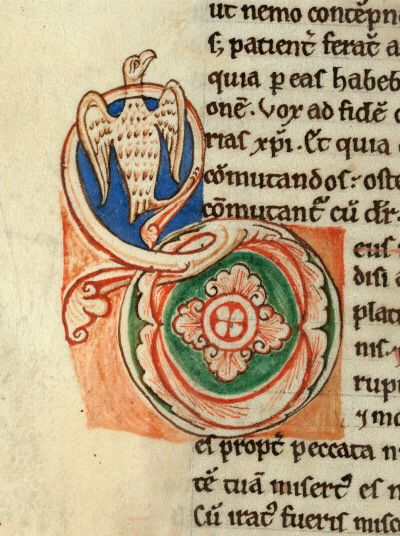 ut nemo contēpn
s; patient̄ ferat a
quia ꝑ eas habeb
onē. Vox ad fidē c
rias xp̄i. Et quia
cōmutandos: oste
cōmutant᷑ cū dr̄.
eus
disi a
plac
nis.
rupt
⁊ mo
es propt̄ peccata n
tē tuā misert᷒ es n
Cū irat᷒ fueris misc